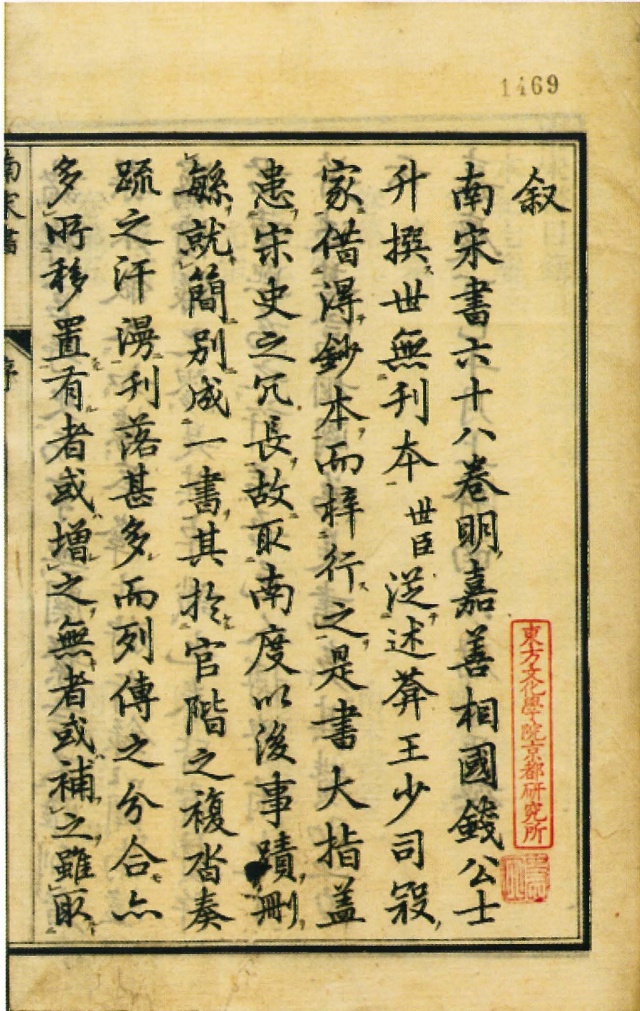 1469
叙
南宋書六十八卷明嘉善相國錢公士
升撰世無刋本世臣從述葊王少司寇
家借得鈔本而梓行之是書大指盖
患宋史之冗長故取南度以後事蹟刪
繇就簡別成一書其扵官階之複沓奏
疏之汗漫刊落甚多而列傳之分合亦
多所移置有者或增之無者或補之雖取
南宋書
序
東方文化學院京都研究所